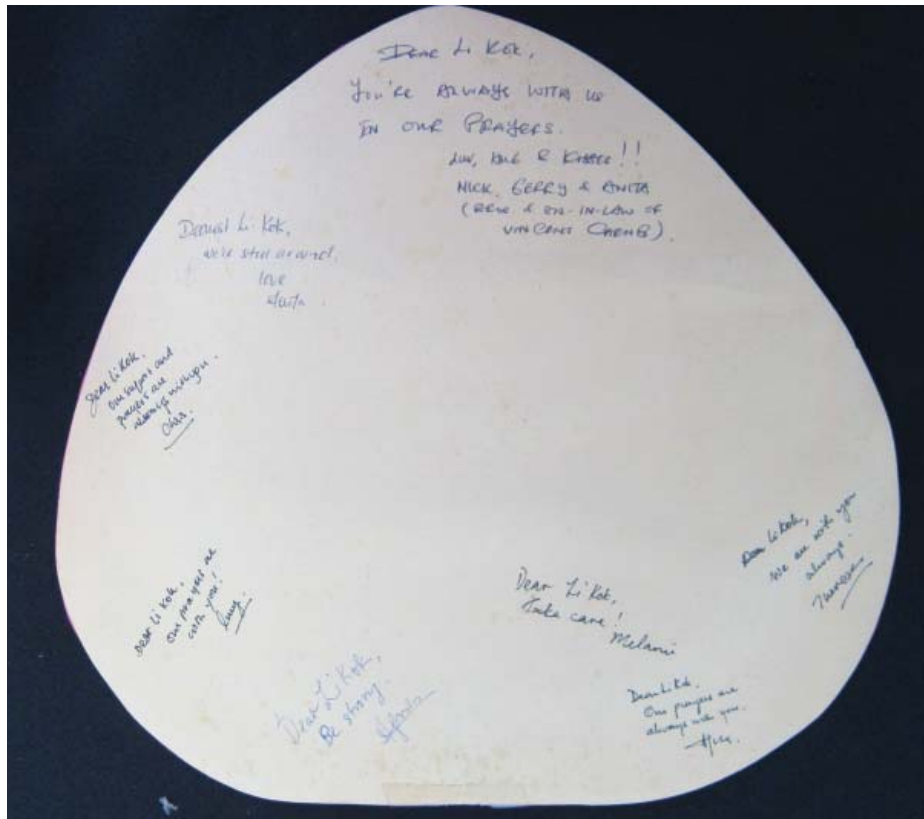 Dear Li Kok,
You're always with us
in our prayers.
Luv, Hug & Kisses!!
Nick, Gerry & Anita
(Bew & Sis-in-law of
Vincent Cheng).
Dearest Li Kok,
We're still around.
love
Dear Li Kok.
Our support and
prayers are
always with you.
Chris.
Dear Li Kok,
our prayers are
with you!
Dear Li Kok,
Be strong.
Dear Li Kok,
Take care!
Melanie
Dear Li Kok,
We are with you
always.
Theresa
Dear Li Kok.
Our prayers are
always with you.